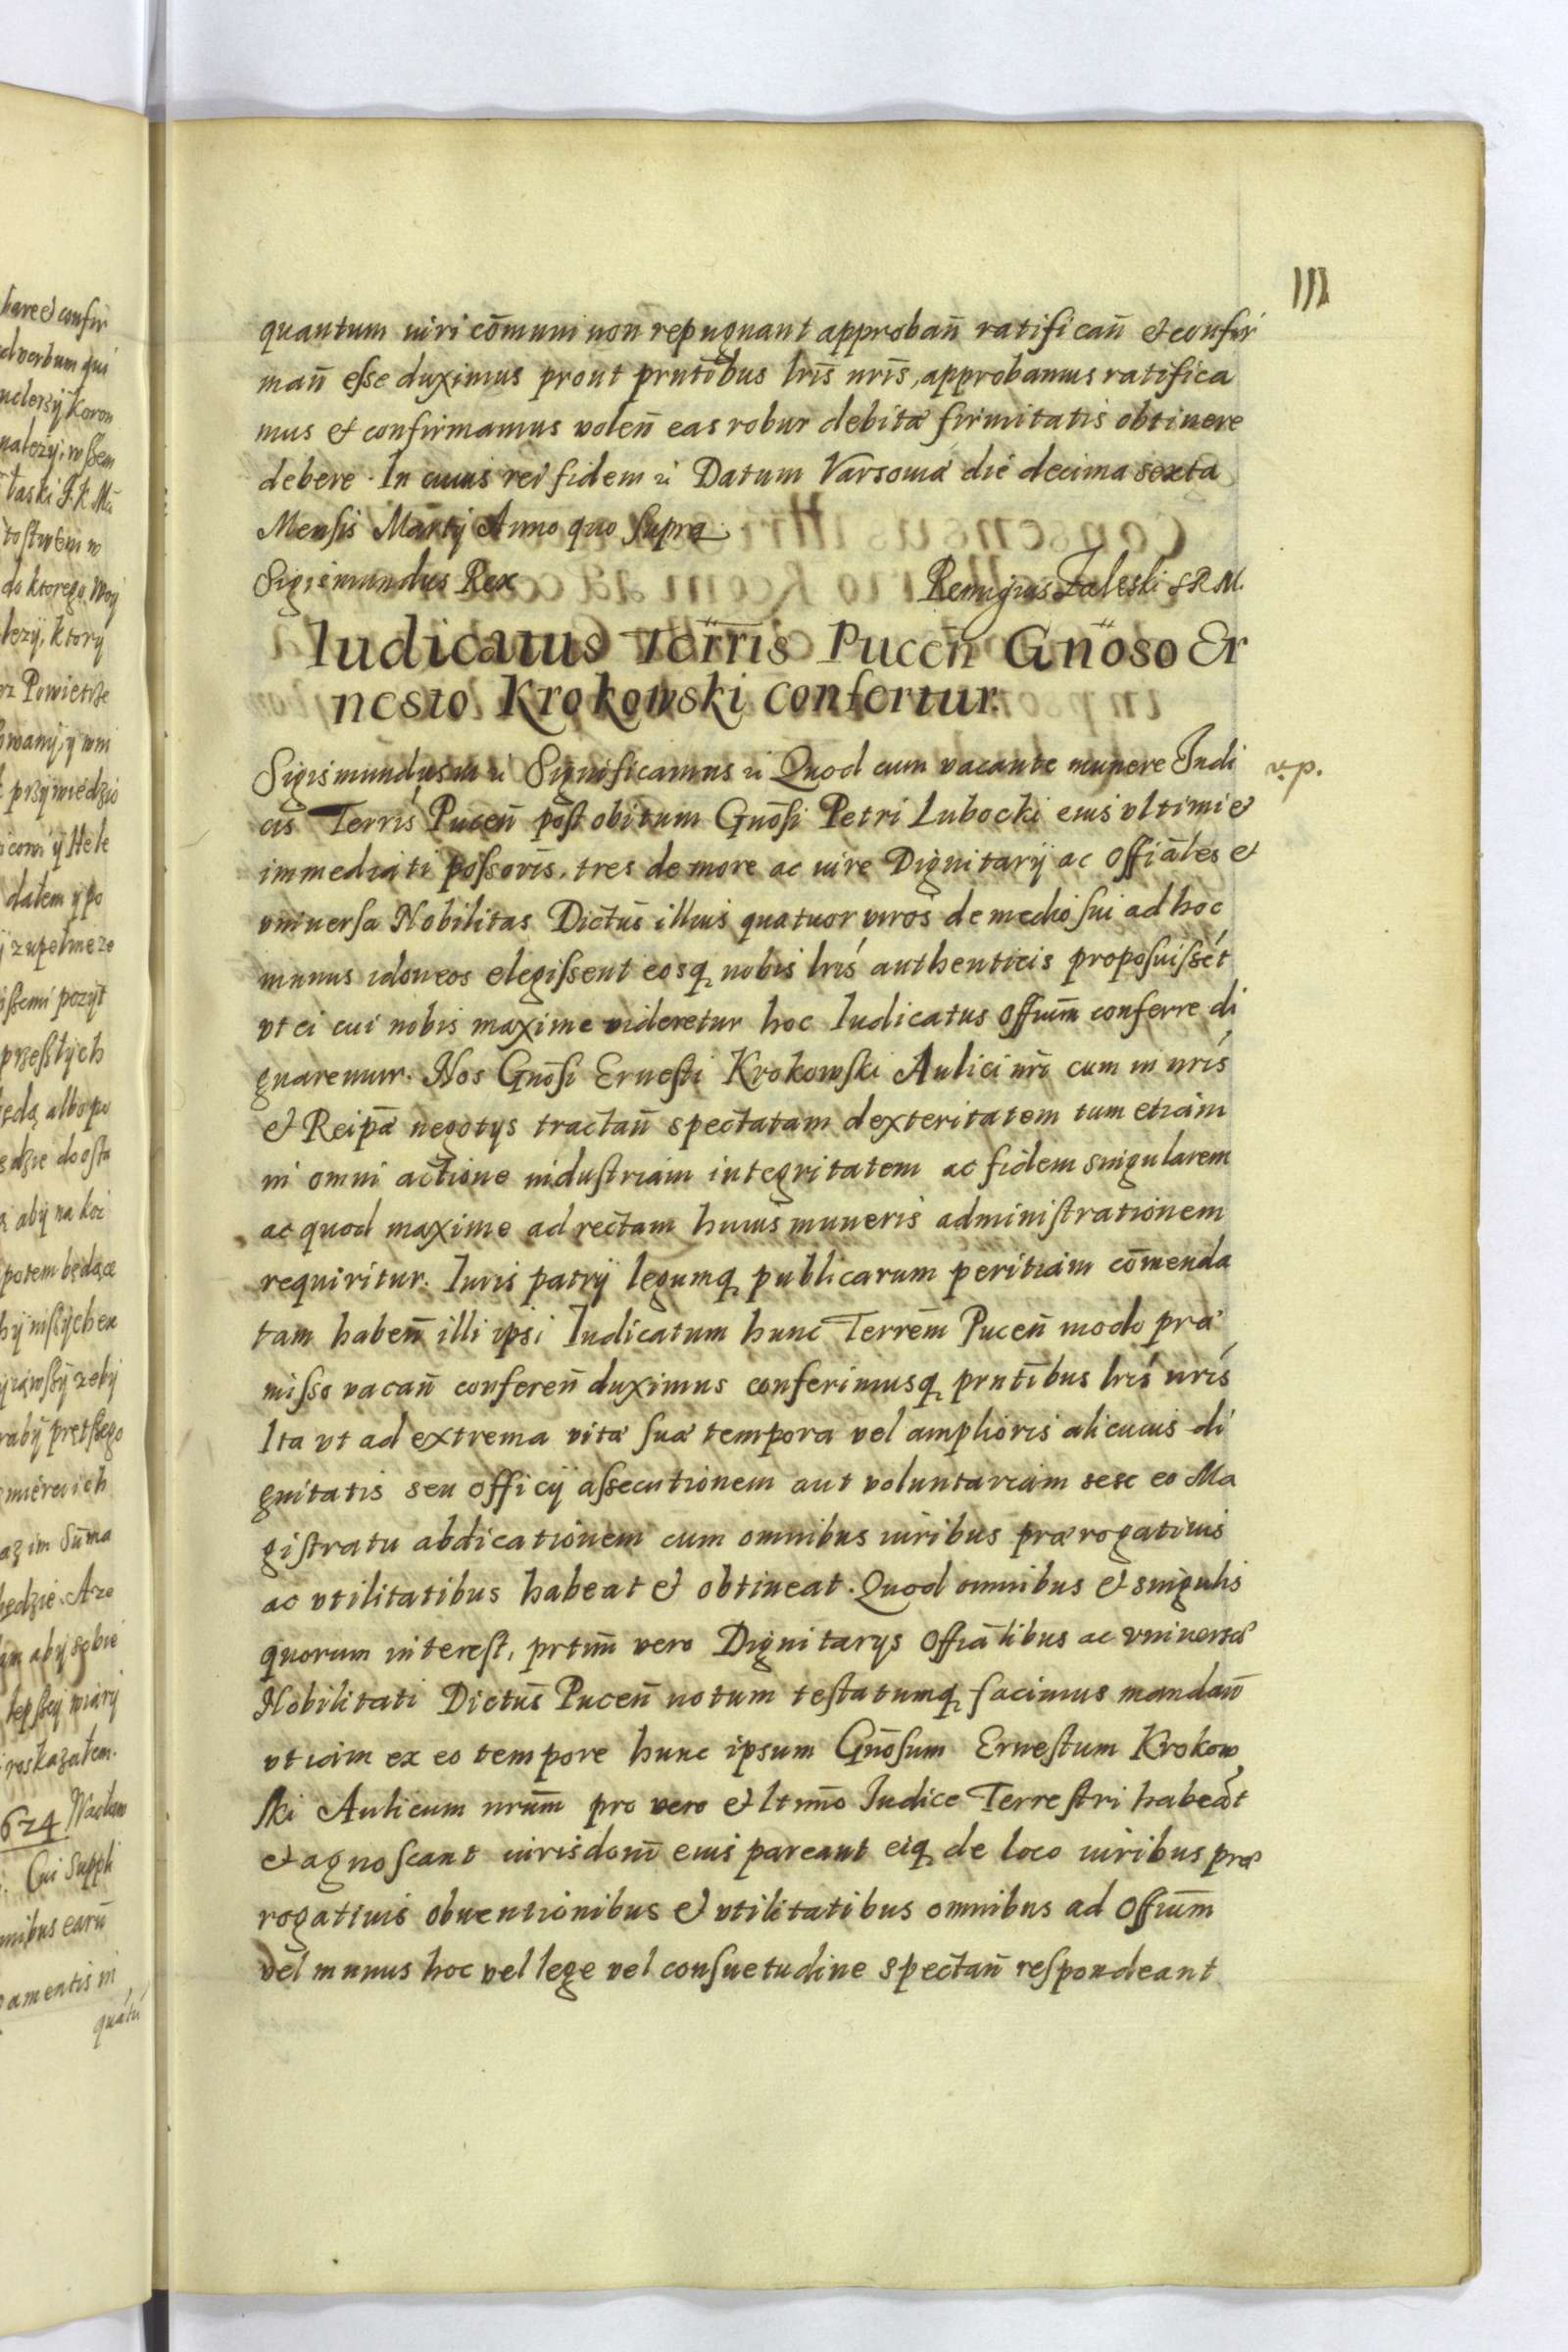 111
quantum iuri cōmuni non repugnant approbañ ratificañ et confir
mañ esse duximus prout prntibus lris nris, approbamus ratifica
mus et confirmamus voleñ eas robur debitæ firmitatis obtinere
debere. In cuius rei fidem Datum Varsoviæ die decima sexta
Mensis Martij Anno quo supra.
Sigismundus Rex Remigius Zaleski S R M.
Iudicatus Terris Puceñ Gnoso Er
nesto Krokowski confertur.
Sigismundus Significamus Quod cum vacante munere Iudi
v.p.
cis Terris Puceñ post obitum Gnosi Petri Lubocki eius vltimi et
immediati possoris, tres de more ac iure Dignitarij ac offiales et
vniuersa Nobilitas Dictus illius quatuor viros de medio sui ad hoc
munus idoneos elegissent eosq nobis lris authenticis proposuissēt
vt ei cui nobis maxime videretur hoc Iudicatus offium conferre di
gnaremur. Nos Gnosi Ernesti Krokowski Aulici nri cum in nris
et Reipæ negotys tractañ spectatam dexteritatem tum etiam
in omni actione industriam integritatem ac fidem singularem
ac quod maxime ad rectam huius muneris administrationem
requiritur. Iuris patrij legumq publicarum peritiam cōmenda
tam habeñ illi ipsi Iudicatum hunc Terrem Puceñ modo præ
misso vacañ confereñ duximus conferimusq prntibus lris nris
Ita vt ad extrema vitæ suæ tempora vel amplioris alicuius di
gnitatis seu officij assecutionem aut voluntariam sese eo Ma
gistratu abdicationem cum omnibus iuribus prærogatiuis
ac vtilitatibus habeat et obtineat. Quod omnibus et singulis
quorum interest, prtim vero Dignitarys offialibus ac vniuersæ
Nobilitati Dictus Puceñ notum testatumq facimus mandañ
vt iam ex eo tempore hunc ipsum Gnosum Ernestum Krokow
ski Aulicum nrum pro vero et ltimo Iudice Terrestri habeāt
et agnoscant iurisdoni eius pareant eiq de loco iuribus præ
rogatiuis obuentionibus et vtilitatibus omnibus ad offium
vel munus hoc vel lege vel consuetudine spectañ respondeant